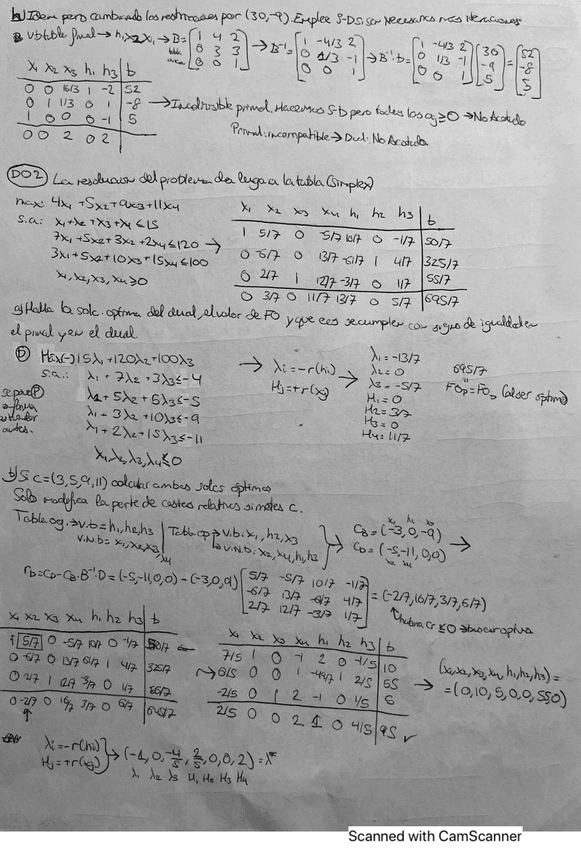 h) Idem pero cambiando las restricciones por (30,-9). Emplee S-D si son necesarias más iteraciones
V.b table final → h1, x2, x1 → B = [1 4 2; 0 3 3; 0 0 1] → B^-1 = [1 -4/3 2; 0 1/3 -1; 0 0 1] → B^-1·b = [1 -4/3 2; 0 1/3 -1; 0 0 1] [30; -9; 5] = [52; -8; 5]
x1 x2 x3 h1 h3 | b
0 0 16/3 1 -2 | 52
0 1 11/3 0 1 | -8
1 0 0 0 -1 | 5
0 0 2 0 2 |
→ Inadmisible primal. Hacemos S-D pero todos los aij ≥ 0 → No Acotado
Primal: incompatible → Dual: No Acotado
DO2 La resolución del problema da lugar a la tabla (Simplex)
max: 4x1 + 5x2 + 9x3 + 11x4
s.a: x1 + x2 + x3 + x4 ≤ 15
7x1 + 5x2 + 3x2 + 2x4 ≤ 120 →
3x1 + 5x2 + 10x3 + 15x4 ≤ 100
x1, x2, x3, x4 ≥ 0
x1 x2 x3 x4 h1 h2 h3 | b
1 5/7 0 -5/7 10/7 0 -1/7 | 50/7
0 -6/7 0 13/7 -61/7 1 4/7 | 325/7
0 2/7 1 12/7 -3/7 0 1/7 | 55/7
0 3/7 0 11/7 13/7 0 5/7 | 695/7
a) Halla la solc. optima del dual, el valor de FO y que ecs se cumplen con signo de igualdad en
el primal y en el dual
D) Max(-) 15λ1 + 120λ2 + 100λ3
s.a.: λ1 + 7λ2 + 3λ3 ≤ -4
λ1 + 5λ2 + 5λ3 ≤ -5
λ1 + 3λ2 + 10λ3 ≤ -9
λ1 + 2λ2 + 15λ3 ≤ -11
λ1, λ2, λ3, λ4 ≤ 0
→ λi = -r(hi)
Hj = +r(xj) →
λ1 = -13/7
λ2 = 0
λ3 = -5/7
H1 = 0
H2 = 3/7
H3 = 0
H4 = 11/7
695/7
FOp = FOD (al ser optimo)
b) Si c = (3,5,9,11) calcular ambas solcs óptimas
Solo modifica la parte de costes relativos si metes c.
Tabla og. → v.b = h1, h2, h3
V.N.b = x1, x2, x3, x4
Tabla op → v.b: x1, h2, x3
→ V.N.b: x2, x4, h1, h3
CB = (-3, 0, -9)
CD = (-5, -11, 0, 0) →
rD = CD - CB·B^-1·D = (-5,-11,0,0) - (-3,0,9) [5/7 -5/7 10/7 -1/7; -6/7 13/7 -61/7 4/7; 2/7 12/7 -3/7 1/7] = (-2/7, 16/7, 3/7, 6/7)
x1 x2 x3 x4 h1 h2 h3 | b
1 5/7 0 -5/7 10/7 0 -1/7 | 50/7 ←
0 -6/7 0 13/7 -61/7 1 4/7 | 325/7
0 2/7 1 12/7 -3/7 0 1/7 | 55/7
0 -2/7 0 16/7 3/7 0 6/7 | 645/7
x1 x2 x3 x4 h1 h2 h3 | b
7/5 1 0 -1 2 0 -1/5 | 10
6/5 0 0 1 -49/7 1 2/5 | 55
-2/5 0 1 2 -1 0 1/5 | 5
2/5 0 0 2 1 0 4/5 | 95 ✓
→ (x1, x2, x3, x4, h1, h2, h3) =
= (0, 10, 5, 0, 0, 55, 0)
λi = -r(hi)
Hj = +r(xj) → (-1, 0, -4/5, 2/5, 0, 0, 2) = λ*
λ1 λ2 λ3 H1 H2 H3 H4
Scanned with CamScanner